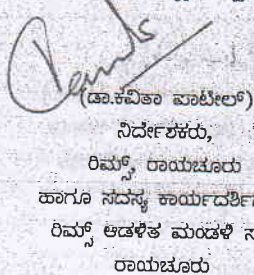 (ಡಾ.ಕವಿತಾ ಪಾಟೀಲ್)
ನಿರ್ದೇಶಕರು,
ರಿಮ್ಸ್ ರಾಯಚೂರು
ಹಾಗೂ ಸದಸ್ಯ
ರಿಮ್ಸ್ ಆಡಳಿತ ಮಂಡಳಿ
ರಾಯಚೂರು